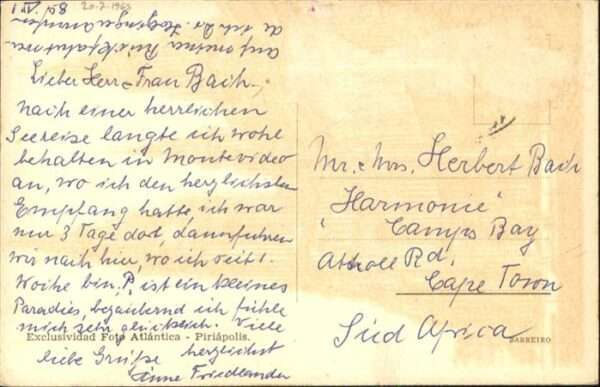 20-7-1963
Lieber Herr - Frau Bach.
nach einer herrlichen
Seereise langte ich wohl
behalten in Montevideo
an, wo ich den herzlichsten
Empfang hatte, ich war
nur 3 Tage dod, dann fuhren
wir nach hier, wo ich seit 1.
Woche bin. P. ist ein kleines
Paradies, bezaubernd ich fühle
mich sehr glücklich. Viele
liebe Grüße herzlichst
Anne Friedlander
Exclusividad Foto Atlántica - Piriápolis.
Mr. & Mrs. Herbert Bach
"Harmonie"
Camps Bay
Atholl Rd,
Cape Town
Süd Africa
BARREIRO